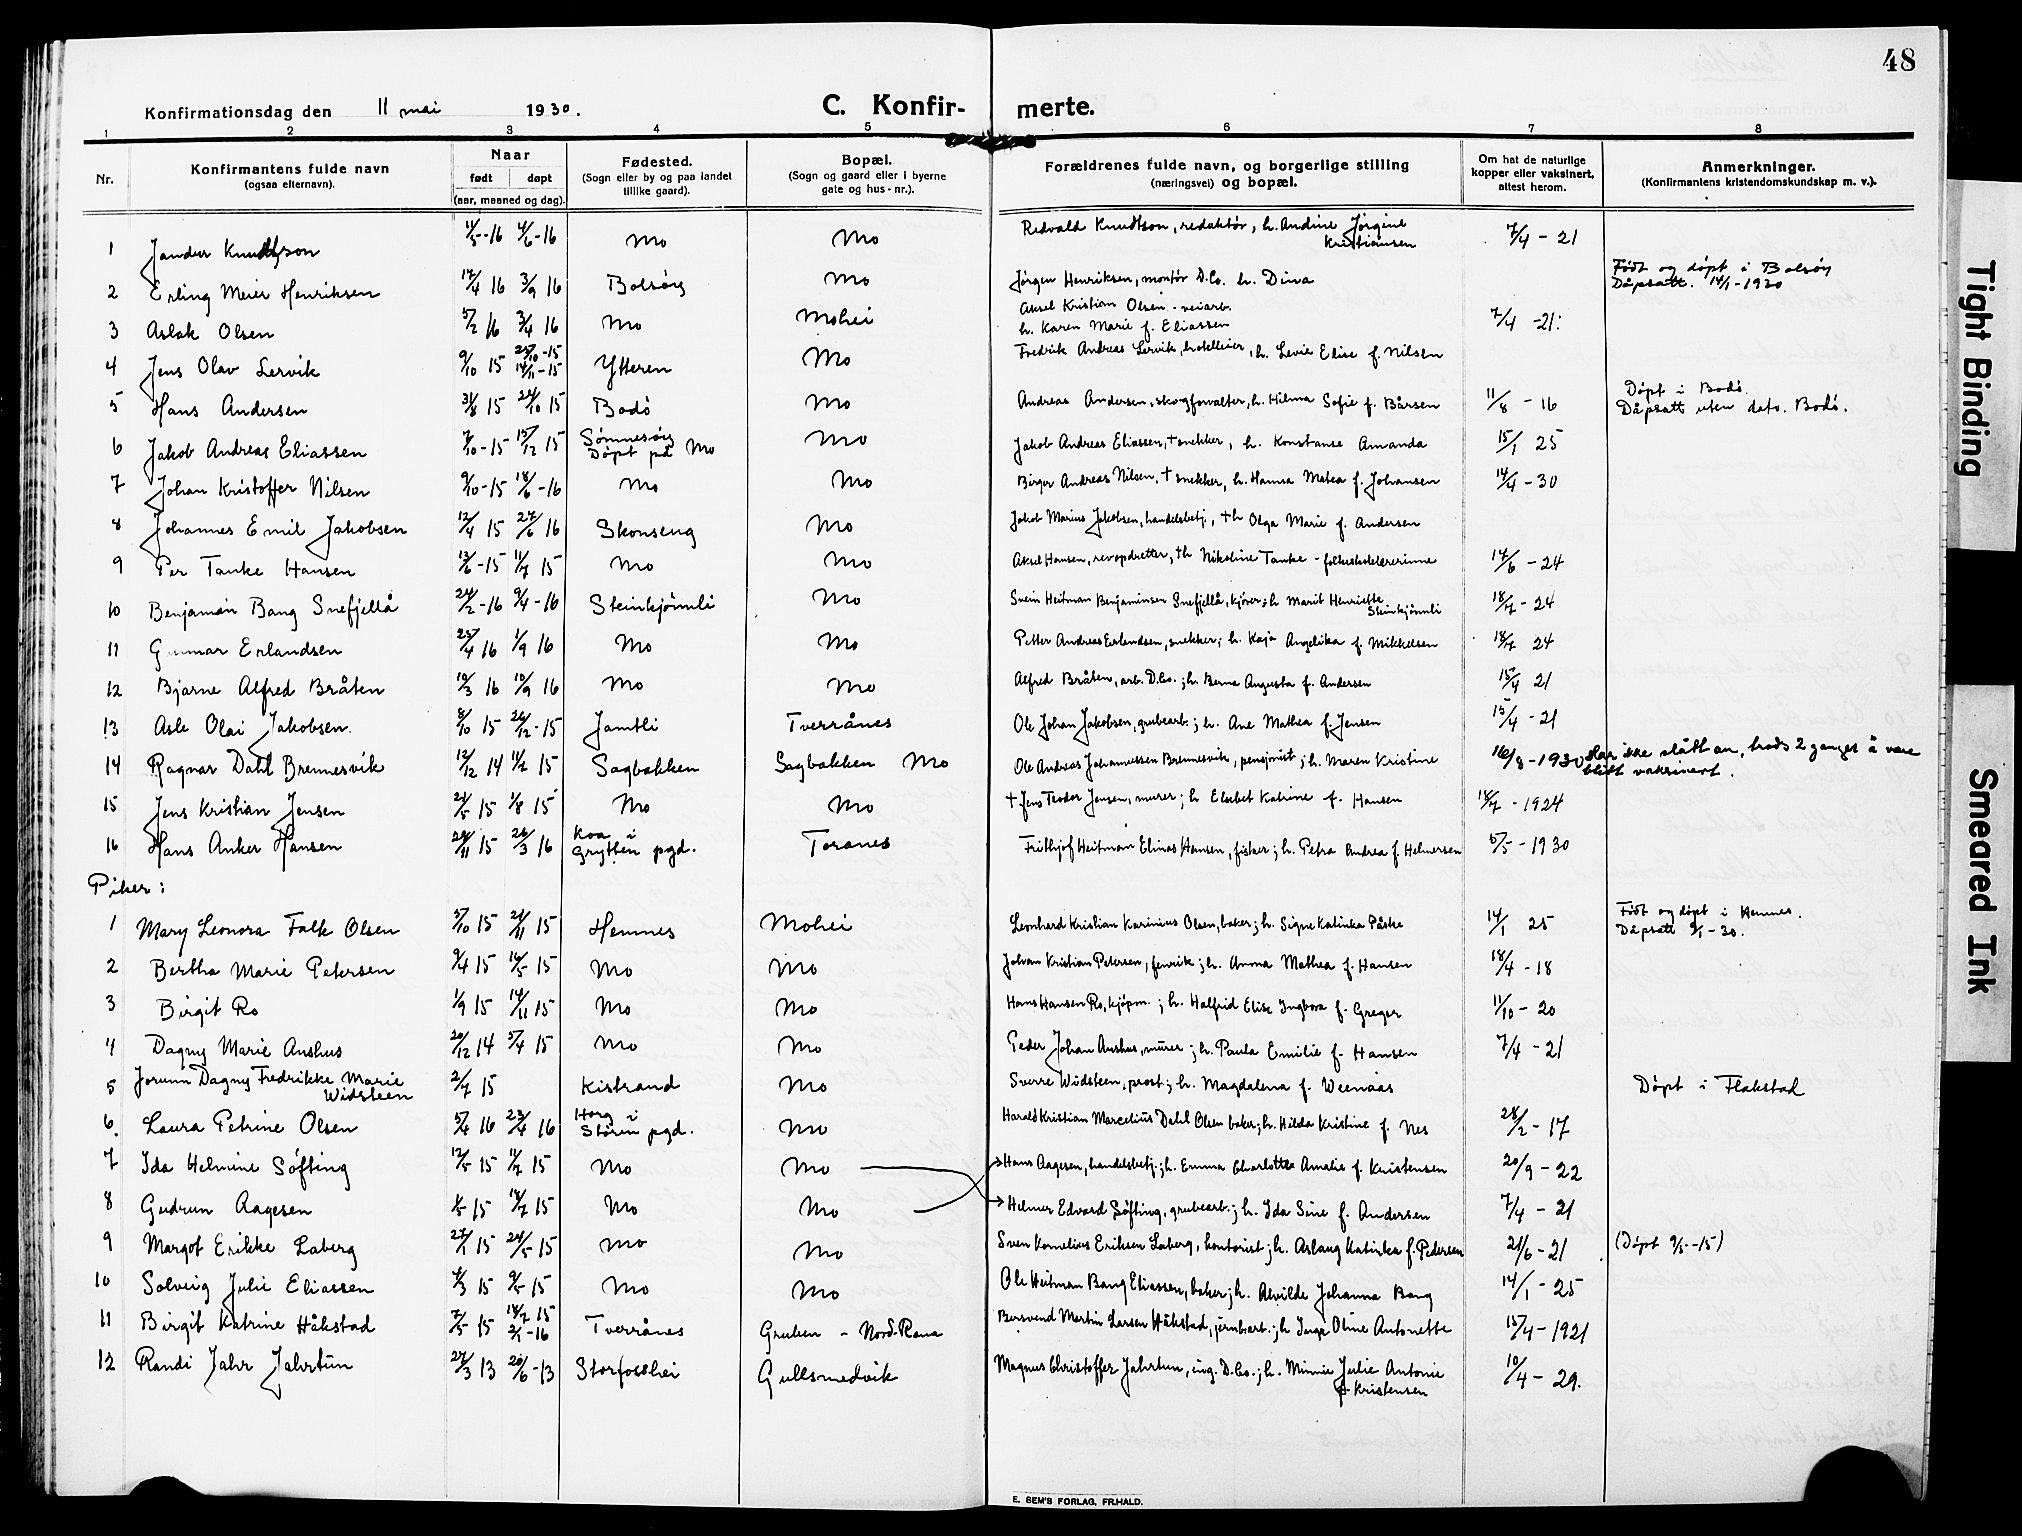 48
Konfirmationsdag den 11 mai 1930.
C. Konfirmerte.
1 2 3 4 5 6 7 8
Nr.
Konfirmantens fulde navn
(ogsaa efternavn).
Naar
født døpt
(aar, maaned og dag).
Fødested.
(Sogn eller by og paa landet
tillike gaard).
Bopæl.
(Sogn og gaard eller i byerne
gate og hus-nr.).
Forældrenes fulde navn, og borgerlige stilling
(næringsvei) og bopæl.
Om hat de naturlige
kopper eller vaksinert,
attest herom.
Anmerkninger.
(Konfirmantens kristendomskundskap m. v.).
1 Jander Knudtson 11/5-16 4/6-16 Mo Mo Redvald Knudtson, redaktør, h. Andine Jørgine Kristiansen 7/4 - 21
2 Erling Meier Henriksen 17/4 16 3/9 16 Bolsøy Mo Jørgen Henriksen, montør D.Co. h. Dina Født og døpt i Bolsøy Dåpsatt. 14/1-1930
3 Aslak Olsen 5/2 16 3/4 16 Mo Mohei Aksel Kristian Olsen - veiarb. h. Karen Marie f. Eliassen 7/4 -21.
4 Jens Olav Lervik 9/10 15 25/10-15 14/11-15 Ytteren Mo Fredrik Andreas Lervik, hotelleier, h. Levie Elise f. Nilsen
5 Hans Andersen 31/8 15 24/10 15 Bodö Mo Andreas Andersen, skogforvalter, h. Hilma Sofie f. Bårsen 11/8 - 16 Döpt i Bodö. Dåpsatt uten dato. Bodö.
6 Jakob Andreas Eliassen 7/10-15 15/12 15 Sömnesöy Döpt på Mo Mo Jakob Andreas Eliassen, † snekker, h. Konstanse Amanda 15/1 25
7 Johan Kristoffer Nilsen 9/10-15 18/6-16 Mo Mo Birger Andreas Nilsen, † snekker, h. Hanna Matea f. Johansen 14/4 - 30
8 Johannes Emil Jakobsen 12/4 15 27/6 16 Skonseng Mo Jakob Marius Jakobsen, handelsbetj., † h Olga Marie f. Andersen
9 Per Tanke Hansen 13/6-15 11/7 15 Mo Mo Aksel Hansen, revopdretter, † h Nikoline Tanke - folkeskolelærerinne 14/6 - 24
10 Benjamin Bang Snefjellå 24/2-16 9/4-16 Steinkjönnli Mo Svein Heitman Benjaminsen Snefjellå, kjører; h Marit Henriette Steinkjönnli 18/7 - 24
11 Gunnar Erlandsen 25/4 16 1/9 16 Mo Mo Petter Andreas Erlandsen, snekker; h. Kaja Angelika f. Mikkelsen 18/7 24
12 Bjarne Alfred Bråten 10/3 16 10/9 16 Mo Mo Alfred Bråten, arb. D.Co.; h. Berna Augusta f. Andersen 15/4 21
13 Asle Olai Jakobsen. 8/10 15 26/12-15 Jamtli Tverrånes Ole Johan Jakobsen, grubearb.; h. Ane Mathea f. Jensen 15/4 - 21
14 Ragnar Dahl Brennesvik 12/12 14 11/2 15 Sagbakken Sagbakken Mo Ole Andreas Johannessen Brennesvik, pensjonist; h. Maren Kristine 16/8 - 1930 Har ikke slått an, trods 2 ganger å være blitt vaksinert.
15 Jens Kristian Jensen 21/5 15 1/8 15 Mo Mo † Jens Teodor Jensen, murer; h Elsebet Katrine f. Hansen 18/7 - 1924
16 Hans Anker Hansen 28/11 15 26/3 16 Koa i Grytten pgd. Toranes Frithjof Heitman Elinas Hansen, fisker; h. Petra Andrea f. Helmersen 5/5 - 1930
Piker:
1 Mary Leonora Falk Olsen 5/10 15 21/11 15 Hemnes Mohei Leonhard Kristian Karinius Olsen, baker; h. Signe Katinka Påske 14/1 25 Födt og döpt i Hemnes. Dåpsatt 9/1-30.
2 Bertha Marie Petersen 9/4 15 16/5 15 Mo Mo Johan Kristian Petersen, fenrik; h. Anna Mathea f. Hansen 18/4 - 18
3 Birgit Ro 1/9 15 14/11 15 Mo Mo Hans Hansen Ro, kjöpm.; h. Halfrid Elise Ingbora f. Greger 11/10 - 20
4 Dagny Marie Aushus 20/12 14 5/4 15 Mo Mo Peder Johan Aushus, murer; h. Paula Emilie f. Hansen 7/4 - 21
5 Jorunn Dagny Fredrikke Marie Widsteen 2/7 15 Kistrand Mo Sverre Widsteen, prost; h. Magdalena f. Weenaas Döpt i Flakstad
6. Laura Petrine Olsen 5/4 16 23/4 16 Horg i Stören pgd. Mo Harald Kristian Marcelius Dahl Olsen baker; h. Hilda Kristine f. Nes 28/2 - 17
7 Ida Helmine Söfting 12/5 15 11/7 15 Mo Mo Hans Aagesen, handelsbetj.; h. Emma Charlotte Amalie f. Kristensen 20/9 - 22
8 Gudrun Aagesen 1/5 15 18/7 15 Mo Mo Helmer Edvard Söfting, grubearb.; h. Ida Sine f. Andersen 7/4 - 21
9 Margot Erikke Laberg 27/1 15 24/5 15 Mo Mo Sven Kornelius Eriksen Laberg, kontorist; h. Aslaug Katinka f. Pedersen 21/6 - 21 (Döpt 9/5-15)
10 Solveig Julie Eliassen 4/3 15 9/5 15 Mo Mo Ole Heitman Bang Eliassen, baker; h. Alvilde Johanna Bang 14/1 - 25
11 Birgit Katrine Håkstad 7/5 15 18/7 15 2/1-16 Tverrånes Gruben - Nord-Rana Bersvend Martin Larsen Håkstad, jernbarb.; h Inga Oline Antonette 15/4 - 1921
12 Randi Jahr Jahrtun 27/3 13 20/6-13 Storfosshei Gullsmedvik Magnus Christoffer Jahrtun, ing. D.Co.; h. Minnie Julie Antonie f. Kristensen 10/4 - 29.
E. SEM'S FORLAG, FR.HALD.
Tight Binding
Smeared Ink